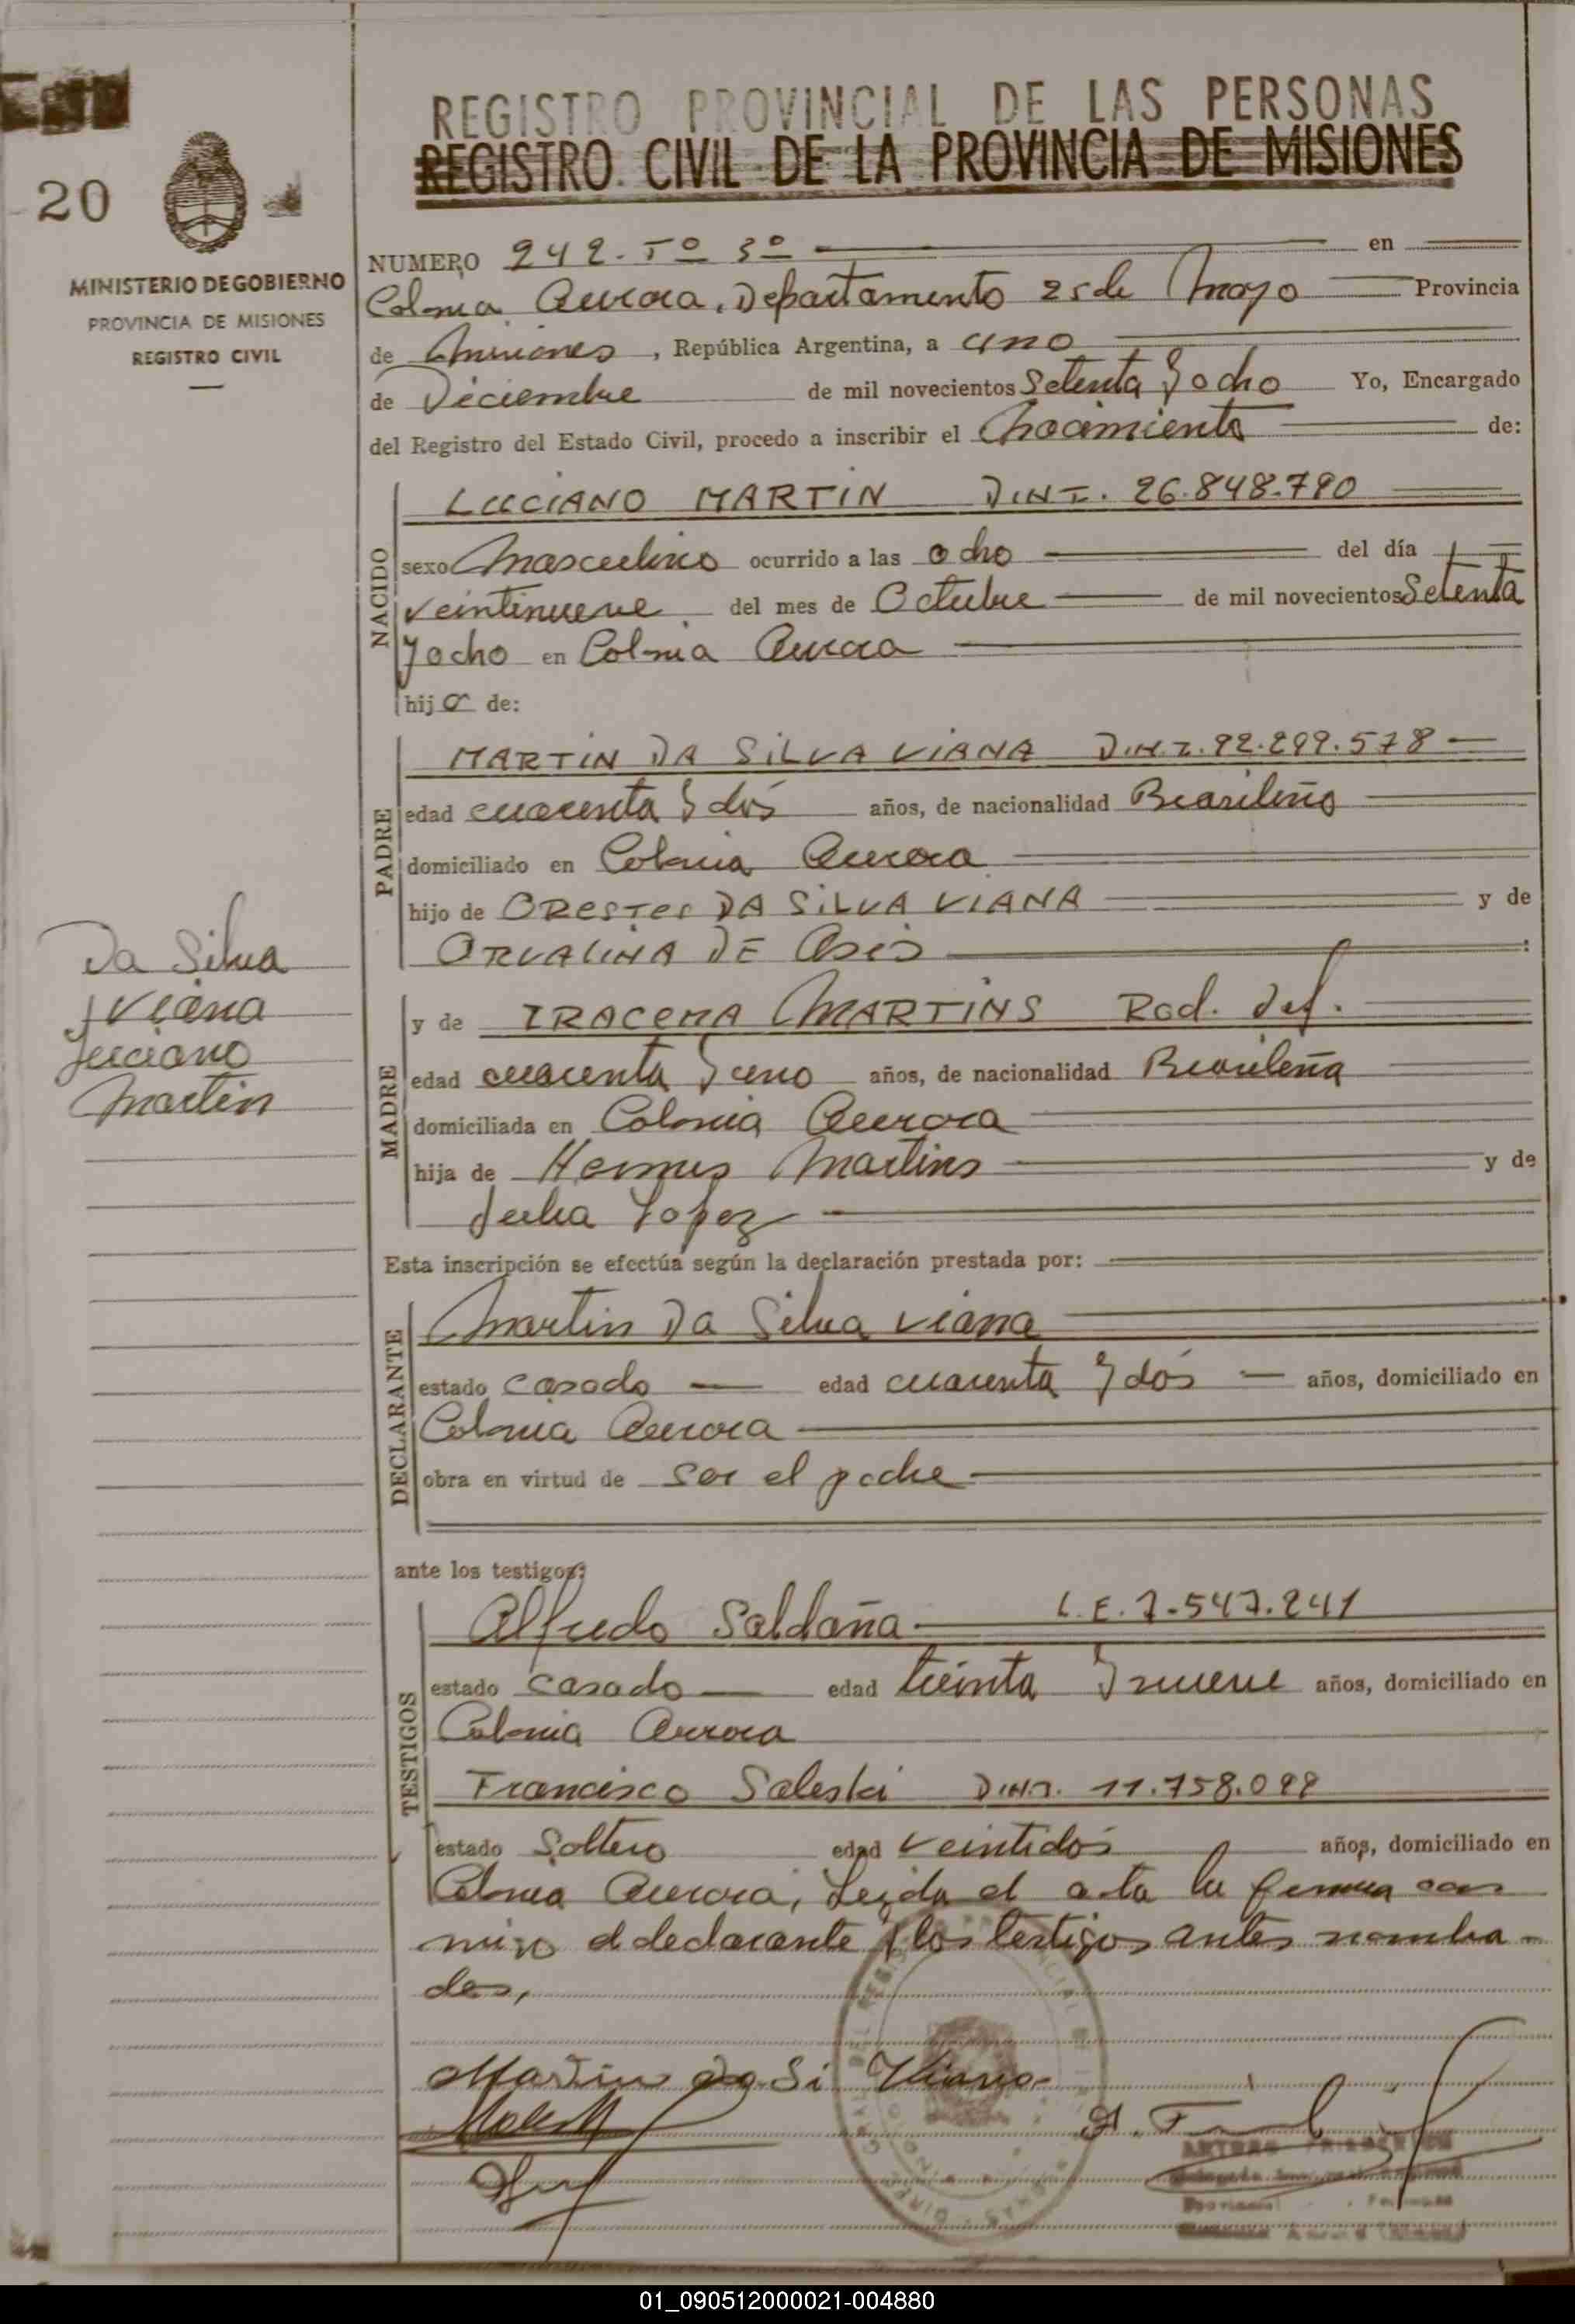 REGISTRO PROVINCIAL DE LAS PERSONAS
REGISTRO CIVIL DE LA PROVINCIA DE MISIONES
20
MINISTERIO DE GOBIERNO
PROVINCIA DE MISIONES
REGISTRO CIVIL
NUMERO 242. Tº 3º en
Colonia Aurora, Departamento 25 de Mayo Provincia
de Misiones, República Argentina, a uno
de Diciembre de mil novecientos Setenta y ocho Yo, Encargado
del Registro del Estado Civil, procedo a inscribir el Nacimiento de:
NACIDO
LUCIANO MARTIN D.N.I. 26.848.790
sexo Masculino ocurrido a las ocho del día
veintinueve del mes de Octubre de mil novecientos Setenta
y ocho en Colonia Aurora
hijo de:
PADRE
MARTIN DA SILVA VIANA D.N.I. 92.299.578
edad cuarenta y dós años, de nacionalidad Brasileño
domiciliado en Colonia Aurora
hijo de ORESTES DA SILVA VIANA y de
ORVALINA DE Asis :
MADRE
y de IRACEMA MARTINS Rad. def.
edad cuarenta y uno años, de nacionalidad Brasileña
domiciliada en Colonia Aurora
hija de Hermes Martins y de
Julia Lopez
Da Silva
Viana
Luciano
Martin
Esta inscripción se efectúa según la declaración prestada por:
DECLARANTE
Martin Da Silva Viana
estado casado edad cuarenta y dós años, domiciliado en
Colonia Aurora
obra en virtud de ser el padre
ante los testigos:
TESTIGOS
Alfredo Saldaña L.E. 7.547.241
estado casado edad treinta y nueve años, domiciliado en
Colonia Aurora
Francisco Saleski D.N.I. 11.758.099
estado Soltero edad veintidos años, domiciliado en
Colonia Aurora, Leida el acta la firman con
migo el declarante y los testigos antes nombra-
dos,
Martin da Si Viana
01_090512000021-004880